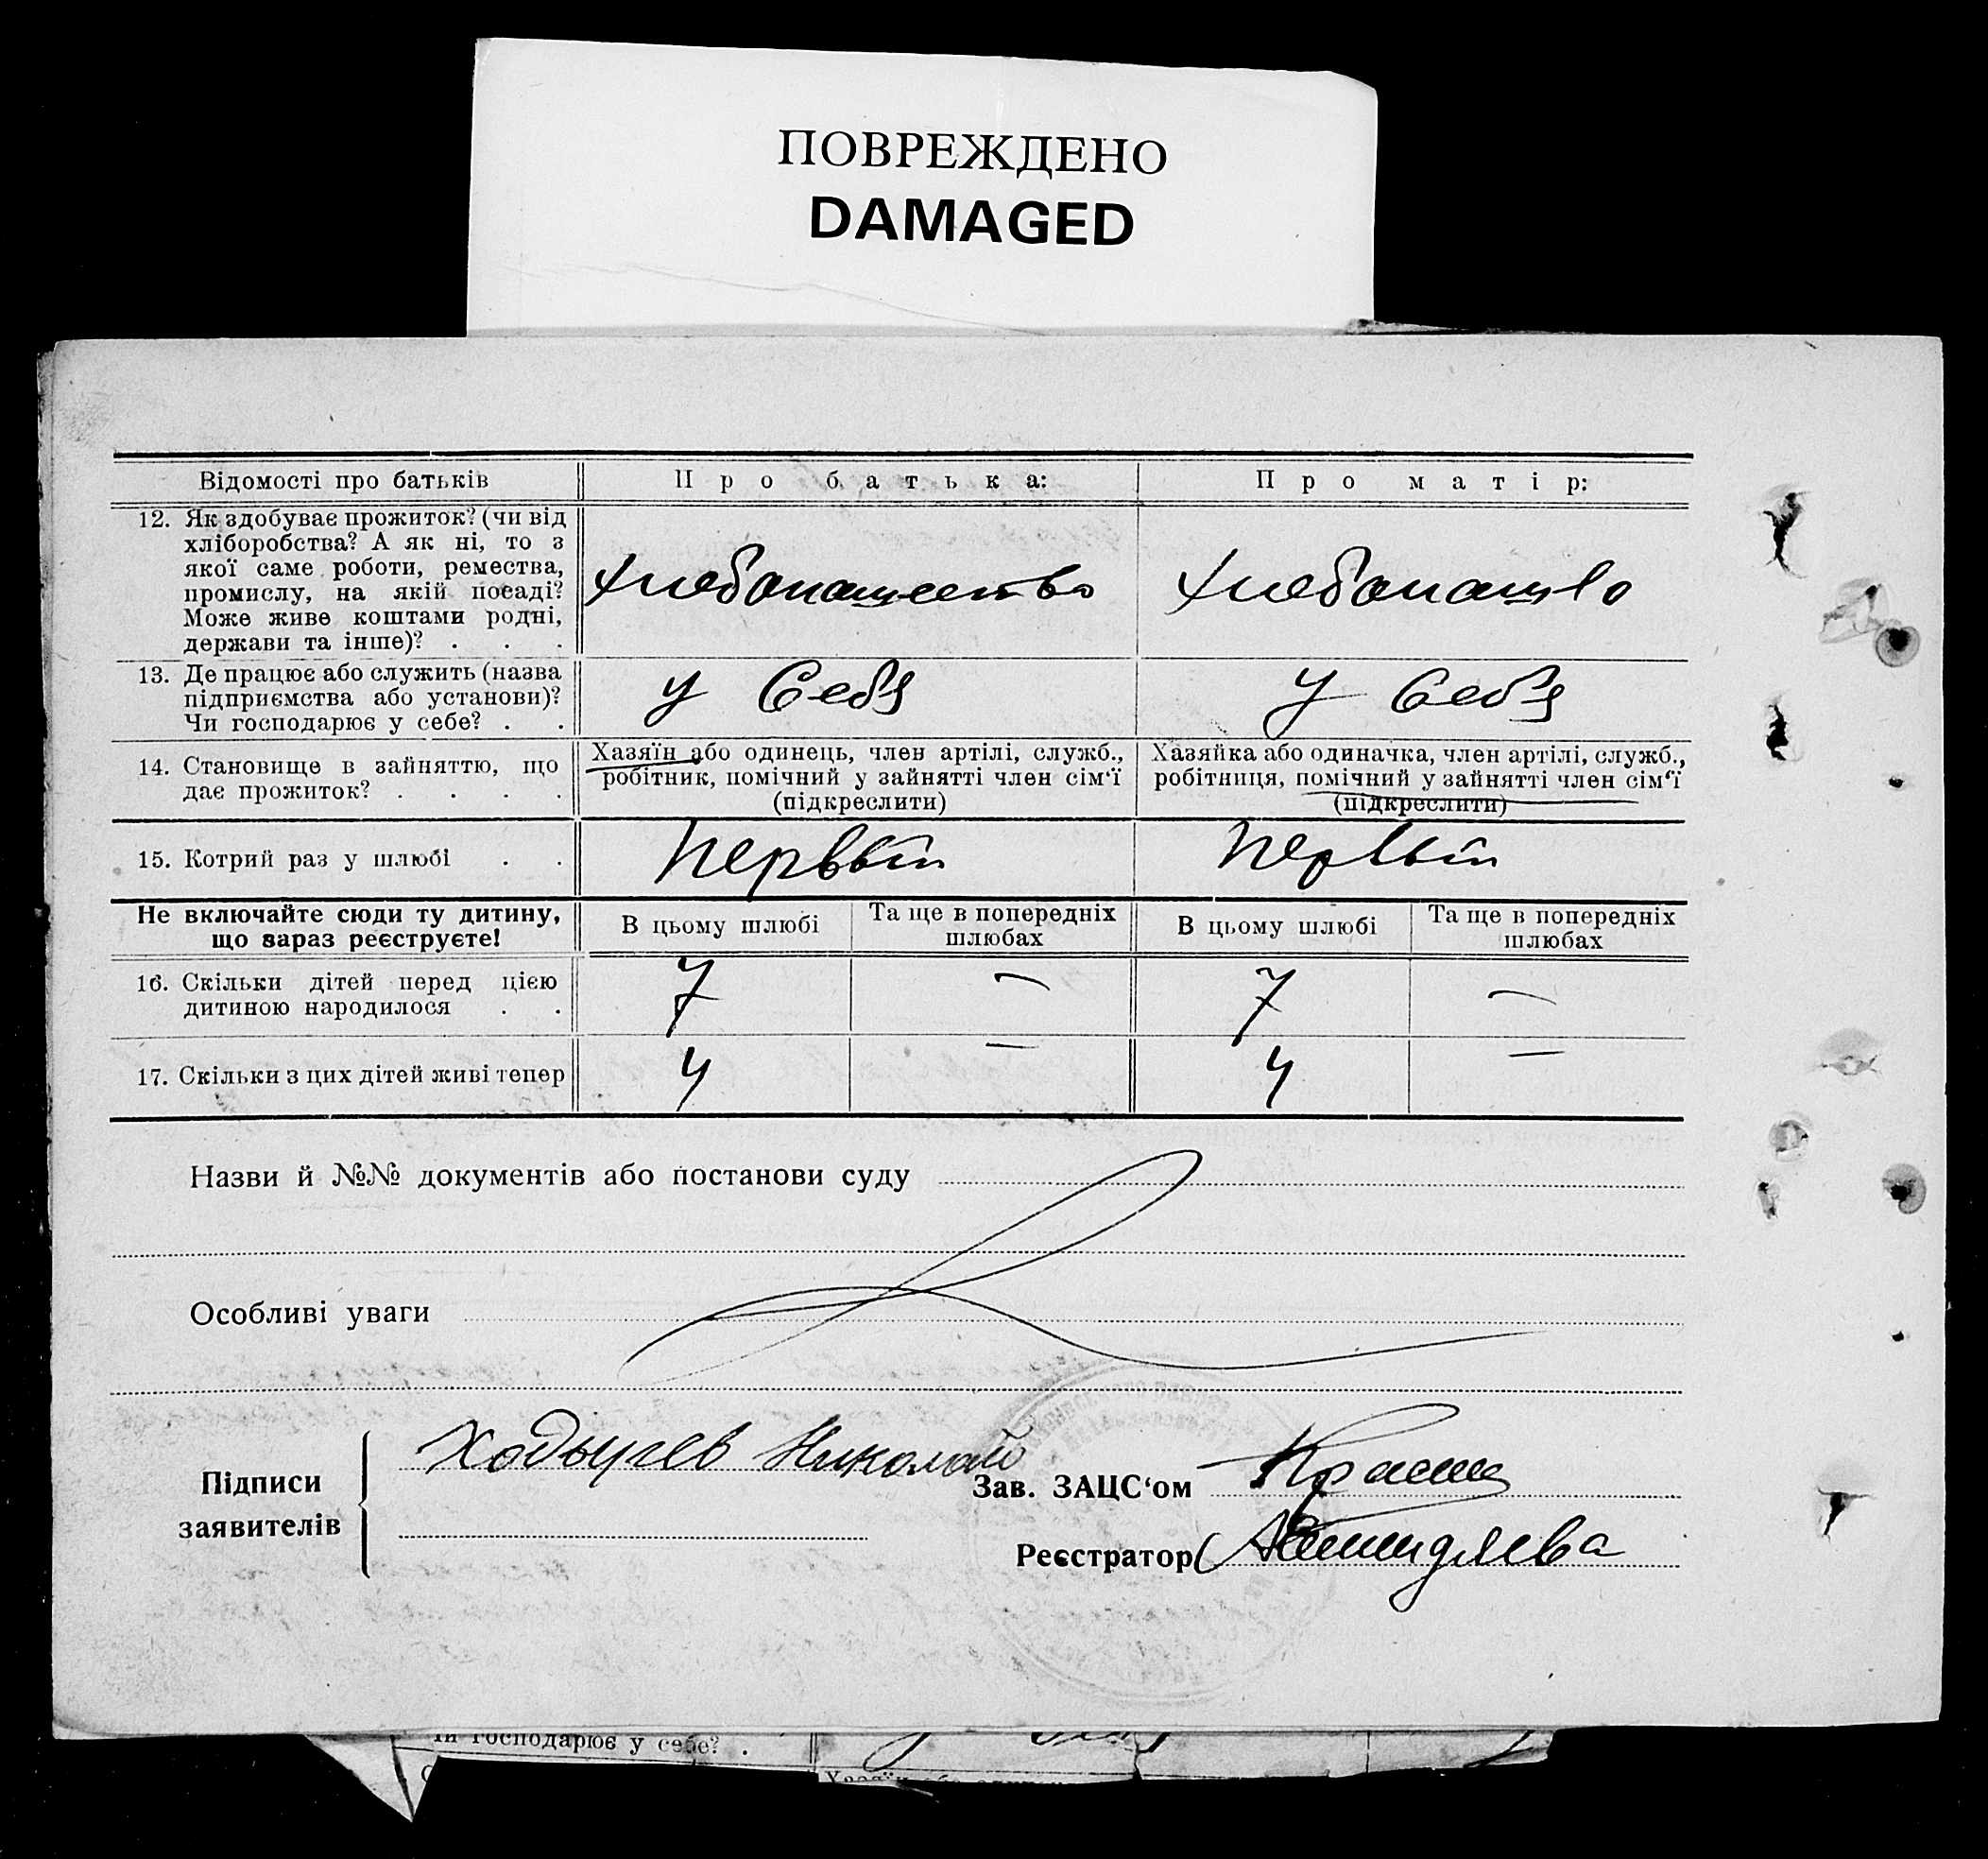 ПОВРЕЖДЕНО
DAMAGED
Відомості про батьків
Про батька:
Про матір:
12. Як здобуває прожиток? (чи від
хліборобства? А як ні, то з
якої саме роботи, ремества,
промислу, на якій посаді?
Може живе коштами родні,
держави та інше)? . . .
хлебопашество
хлебопашво
13. Де працює або служить (назва
підприємства або установи)?
Чи господарює у себе? . .
у Себя
у Себя
14. Становище в зайняттю, що
дає прожиток? . . . .
Хазяїн або одинець, член артілі, служб.,
робітник, помічний у зайнятті член сім‘ї
(підкреслити)
Хазяйка або одиначка, член артілі, служб.,
робітниця, помічний у зайнятті член сім‘ї
(підкреслити)
15. Котрий раз у шлюбі . .
первый
первый
Не включайте сюди ту дитину,
що зараз реєструєте!
В цьому шлюбі
Та ще в попередніх
шлюбах
В цьому шлюбі
Та ще в попередніх
шлюбах
16. Скільки дітей перед цією
дитиною народилося . .
7
—
7
—
17. Скільки з цих дітей живі тепер
4
—
4
—
Назви й №№ документів або постанови суду
Особливі уваги
Підписи
заявителів
Ходычев Николай
Зав. ЗАЦС‘ом
Реєстратор
Чи господарює у себе? .